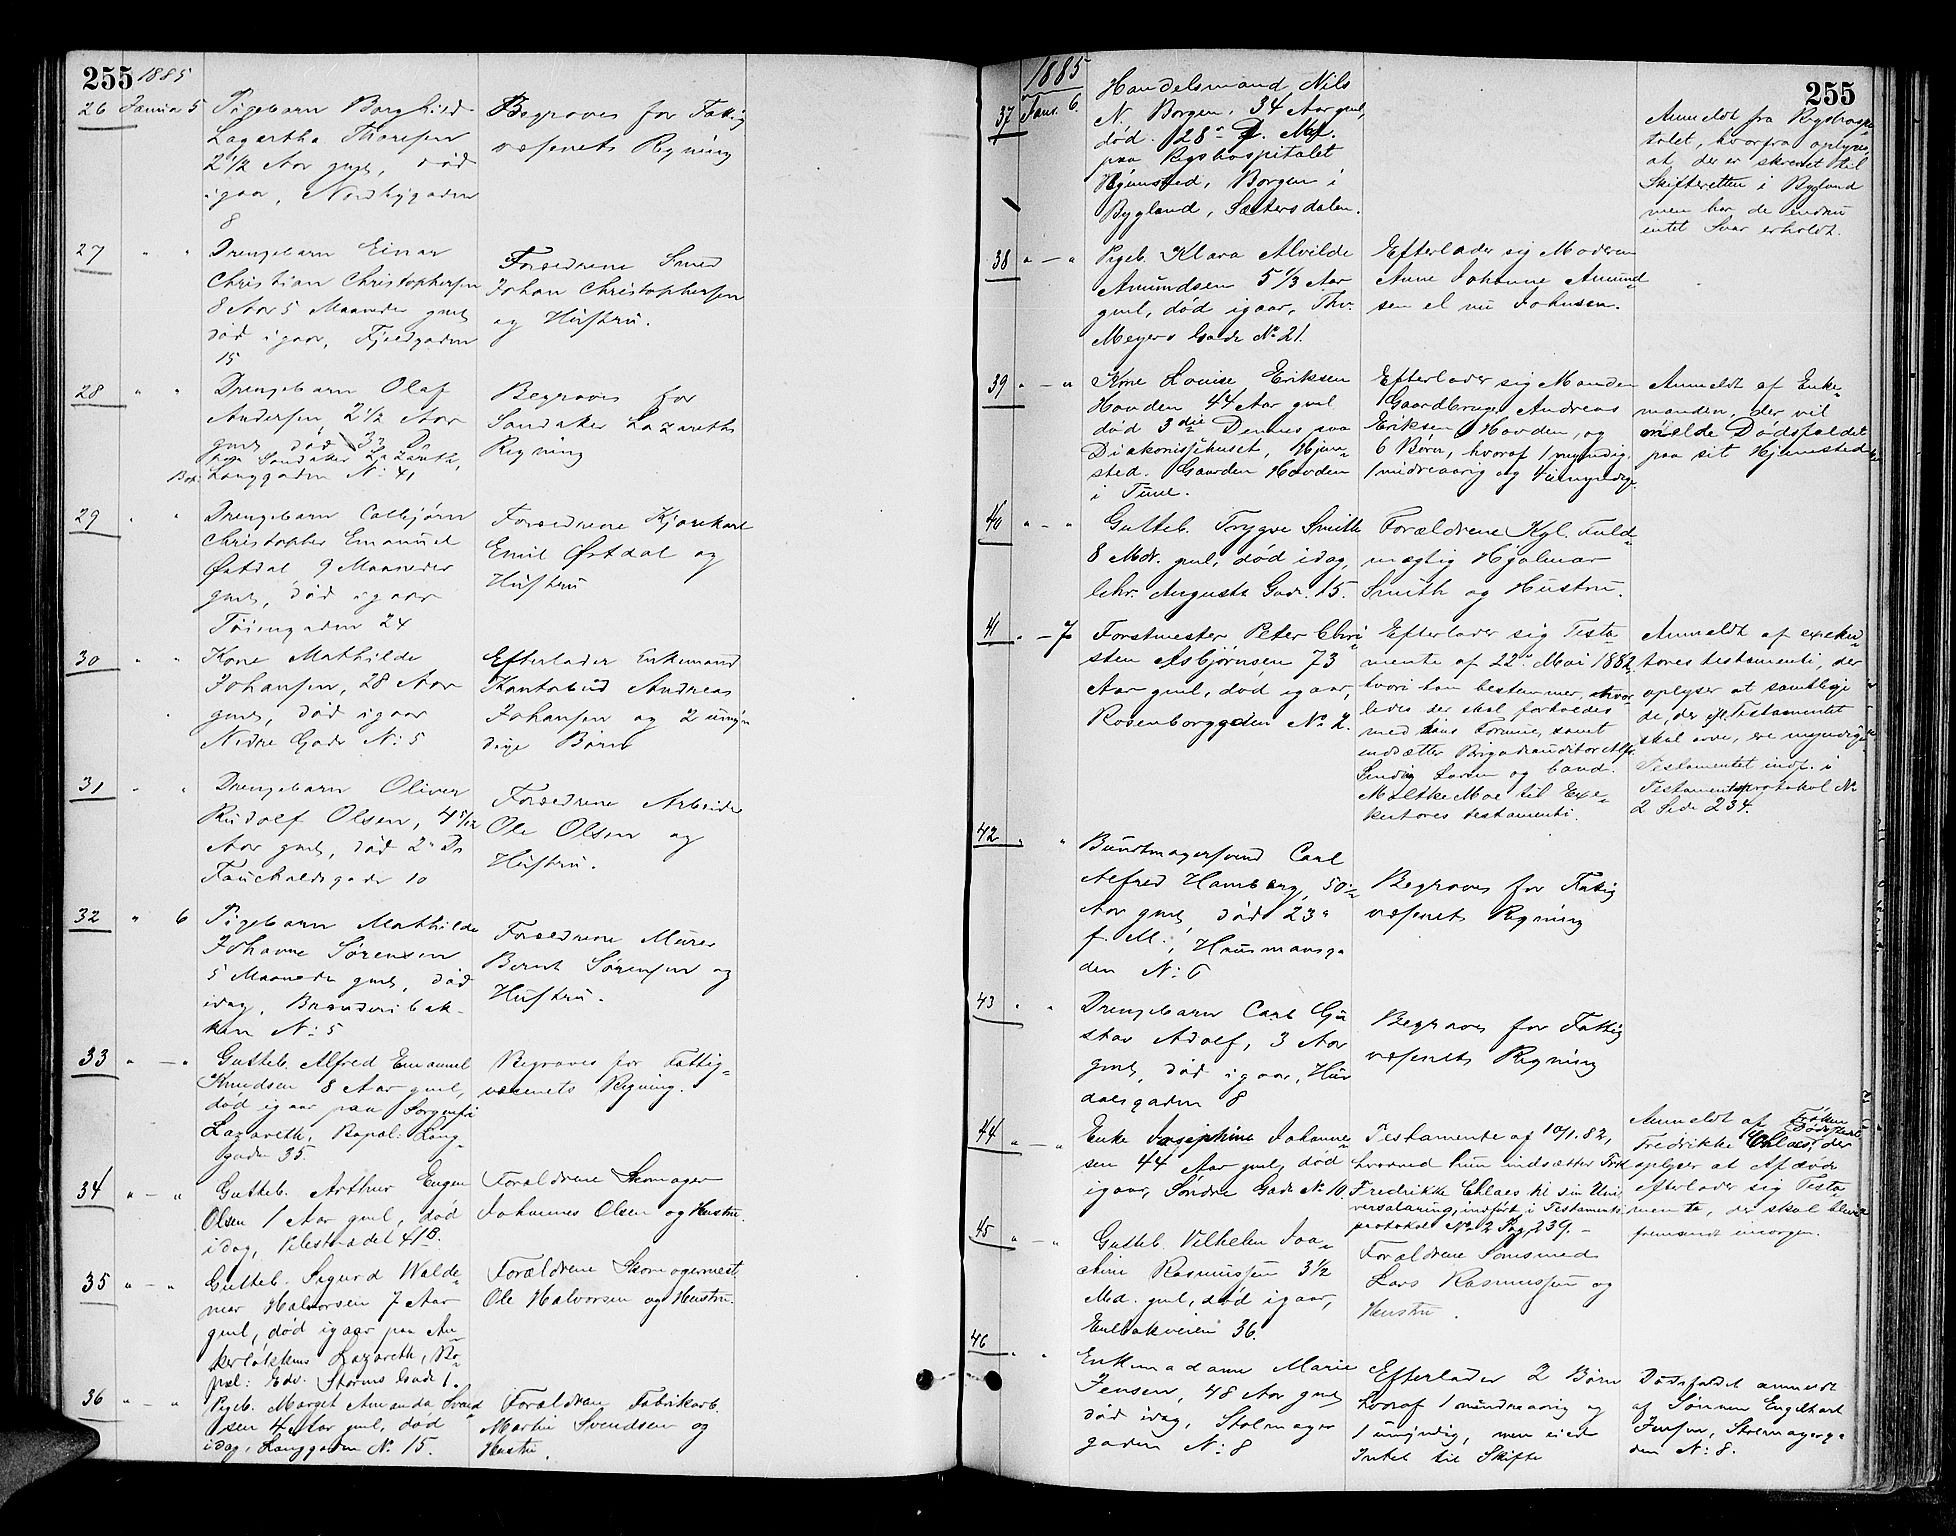 255 1885
26 Januar 5 Pigebarn Borghild
Lagertha Thoresen
2 1/2 Aar gml, død
igaar, Nordbygaden
8
Begraves for Fattig
væsenets Regning
27 " " Drengebarn Einar
Christian Christophersen
8 Aar 5 Maaneder gml
død igaar, Fjeldgaden
15
Forældrene Smed
Johan Christophersen
og Hustru.
28 " " Drengebarn Olaf
Andersen, 2 1/2 Aar
gml, død 3die Ds
paa Sandaker Lazareth,
Bop: Langgaden No: 41
Begraves for
Sandaker Lazareths
Regning
29 " " Drengebarn Colbjørn
Christopher Emanuel
Østdal 9 Maaneder
gml, død igaar
Tøiengaden 24
Forældrene Kjørekarl
Emil Østdal og
Hustru
30 " " Kone Mathilde
Johansen, 28 Aar
gml, død igaar
Nedre Gade No: 5
Efterlader Enkemand
Kontorbud Andreas
Johansen og 2 umyn
dige Børn
31 " " Drengebarn Oliver
Rudolf Olsen, 4 7/12
Aar gml, død 2n Ds
Fauchaldsgade 10
Forældrene Arbeider
Ole Olsen og
Hustru.
32 " 6 Pigebarn Mathilde
Johanne Sørensen
5 Maaneder gml, død
idag, Brænneribak-
ken No: 5
Forældrene Murer
Bernt Sørensen og
Hustru.
33 " — " Gutteb. Alfred Emanuel
Knudsen 8 Aar gml,
død igaar paa Sorgenfri
Lazareth, Bopæl: Lang-
gaden 35.
Begraves for Fattig-
væsenets Regning.
34 " — " Gutteb. Arthur Eugen
Olsen 1 Aar gml, død
idag, Pilestrædet 41B.
Forældrene Skomager
Johannes Olsen og Hustru.
35 " — " Gutteb. Sigurd Walde-
mar Halvorsen 7 Aar
gml, død igaar paa An-
kerløkkens Lazareth, Bo-
pæl: Edv. Storms Gade 1.
Forældrene Skomagermest.
Ole Halvorsen og Hustru.
36 " — " Pigeb. Marget Amanda Svend
sen 4 Aar gml, død
idag, Langgaden No 15.
Forældrene Fabrikarb.
Martin Svendsen og
Hustru.
1885 255
37 Janr. 6. Handelsmand Nils
N. Borgen, 34 Aar gml,
død 28de f. Md.
paa Rigshospitalet
Hjemsted, Borgen i
Bygland, Sætersdalen.
Anmeldt fra Rigshospi-
talet, hvorfra oplyses
at, der er skrevet til
Skifteretten i Bygland
men har de endnu
intet Svar erholdt.
38 " — " Pigeb. Klara Alvilde
Amundsen 5 1/3 Aar
gml, død igaar, Thv.
Meyers Gade No 21.
Efterlader sig Moderen
Anne Johanne Amund-
sen el. nu Johnsen.
39 " — " Kone Louise Eriksen
Hovden 44 Aar gml
død 3die Dennes paa
Diakonissehuset, Hjem-
sted. Gaarden Hovden
i Tune.
Efterlader sig Manden
Gaardbruger Andreas
Eriksen Hovden, og
6 Børn, hvoraf 1 myndig,
1 mindreaarig og 4 umyndige.
Anmeldt af Enke-
manden, der vil
melde Dødsfaldet
paa sit Hjemsted
40 " — " Gutteb. Trygve Smith
8 Mdr. gml, død idag,
Chr. Augusts Gade. 15.
Forældrene Kgl. Fuld-
mægtig Hjalmar
Smith og Hustru.
41 " — 7 Forstmester Peter Chri
sten Asbjørnsen 73
Aar gml, død igaar,
Rosenborggaden No 2.
Efterlader sig Testa-
mente af 22de Mai 1882,
hvori han bestemmer, hvor
ledes der skal forholdes
med hans Formue, samt
indsætter Brigadeauditor Alfr.
Sinding Larsen og Cand.
Moltke Moe til Exe-
kutores testamenti.
Anmeldt af exeku-
tores testamenti, der
oplyser at samtlige
de, der eft. Testamentet
skal arve, ere myndige
Testamentet indf. i
Testamentsprotokol No
2 Side 234.
42 " " Buntmagersvend Carl
Alfred Hamberg, 50
Aar gml, død 23de
f. M., Hausmansga
den No: 6
Begraves for Fattig
væsenets Regning
43 " " Drengebarn Carl Gu
stav Adolf, 3 Aar
gml, død igaar, Hur
dalsgaden 8
Begraves for Fattig
væsenets Regning
44 " — " Enke Josephine Johanne-
sen 44 Aar gml, død
igaar, Søndre Gade No 10.
Testamente af 10/1. 82,
hvorved hun indsætter Frk
Fredrikke Chlaes til sin Uni-
versalarving, indført i Testaments
protokol No 2 Pag. 239.—
Anmeldt af Frøken
Fredrikke Chlaes, der
oplyser at Afdøde
efterlader sig Testa-
mente, der skal blive
fremsendt imorgen.
45 " — " Gutteb. Vilhelm Joa-
chim Rasmussen 3 1/2
Md. gml, død igaar,
Enebakveien 36.
Forældrene
Lars Rasmussen og
Hustru.
46 " " Enkemadame Marie
Jensen, 48 Aar gml
død idag, Stolmager
gaden No: 8
Efterlader 2 Børn
hvoraf 1 mindreaarig og
1 umyndig, men eied
Intet til Skifte
Dødsfaldet anmeldt
af Sønnen Engelhart
Jensen, Stolmagerga
den No: 8.